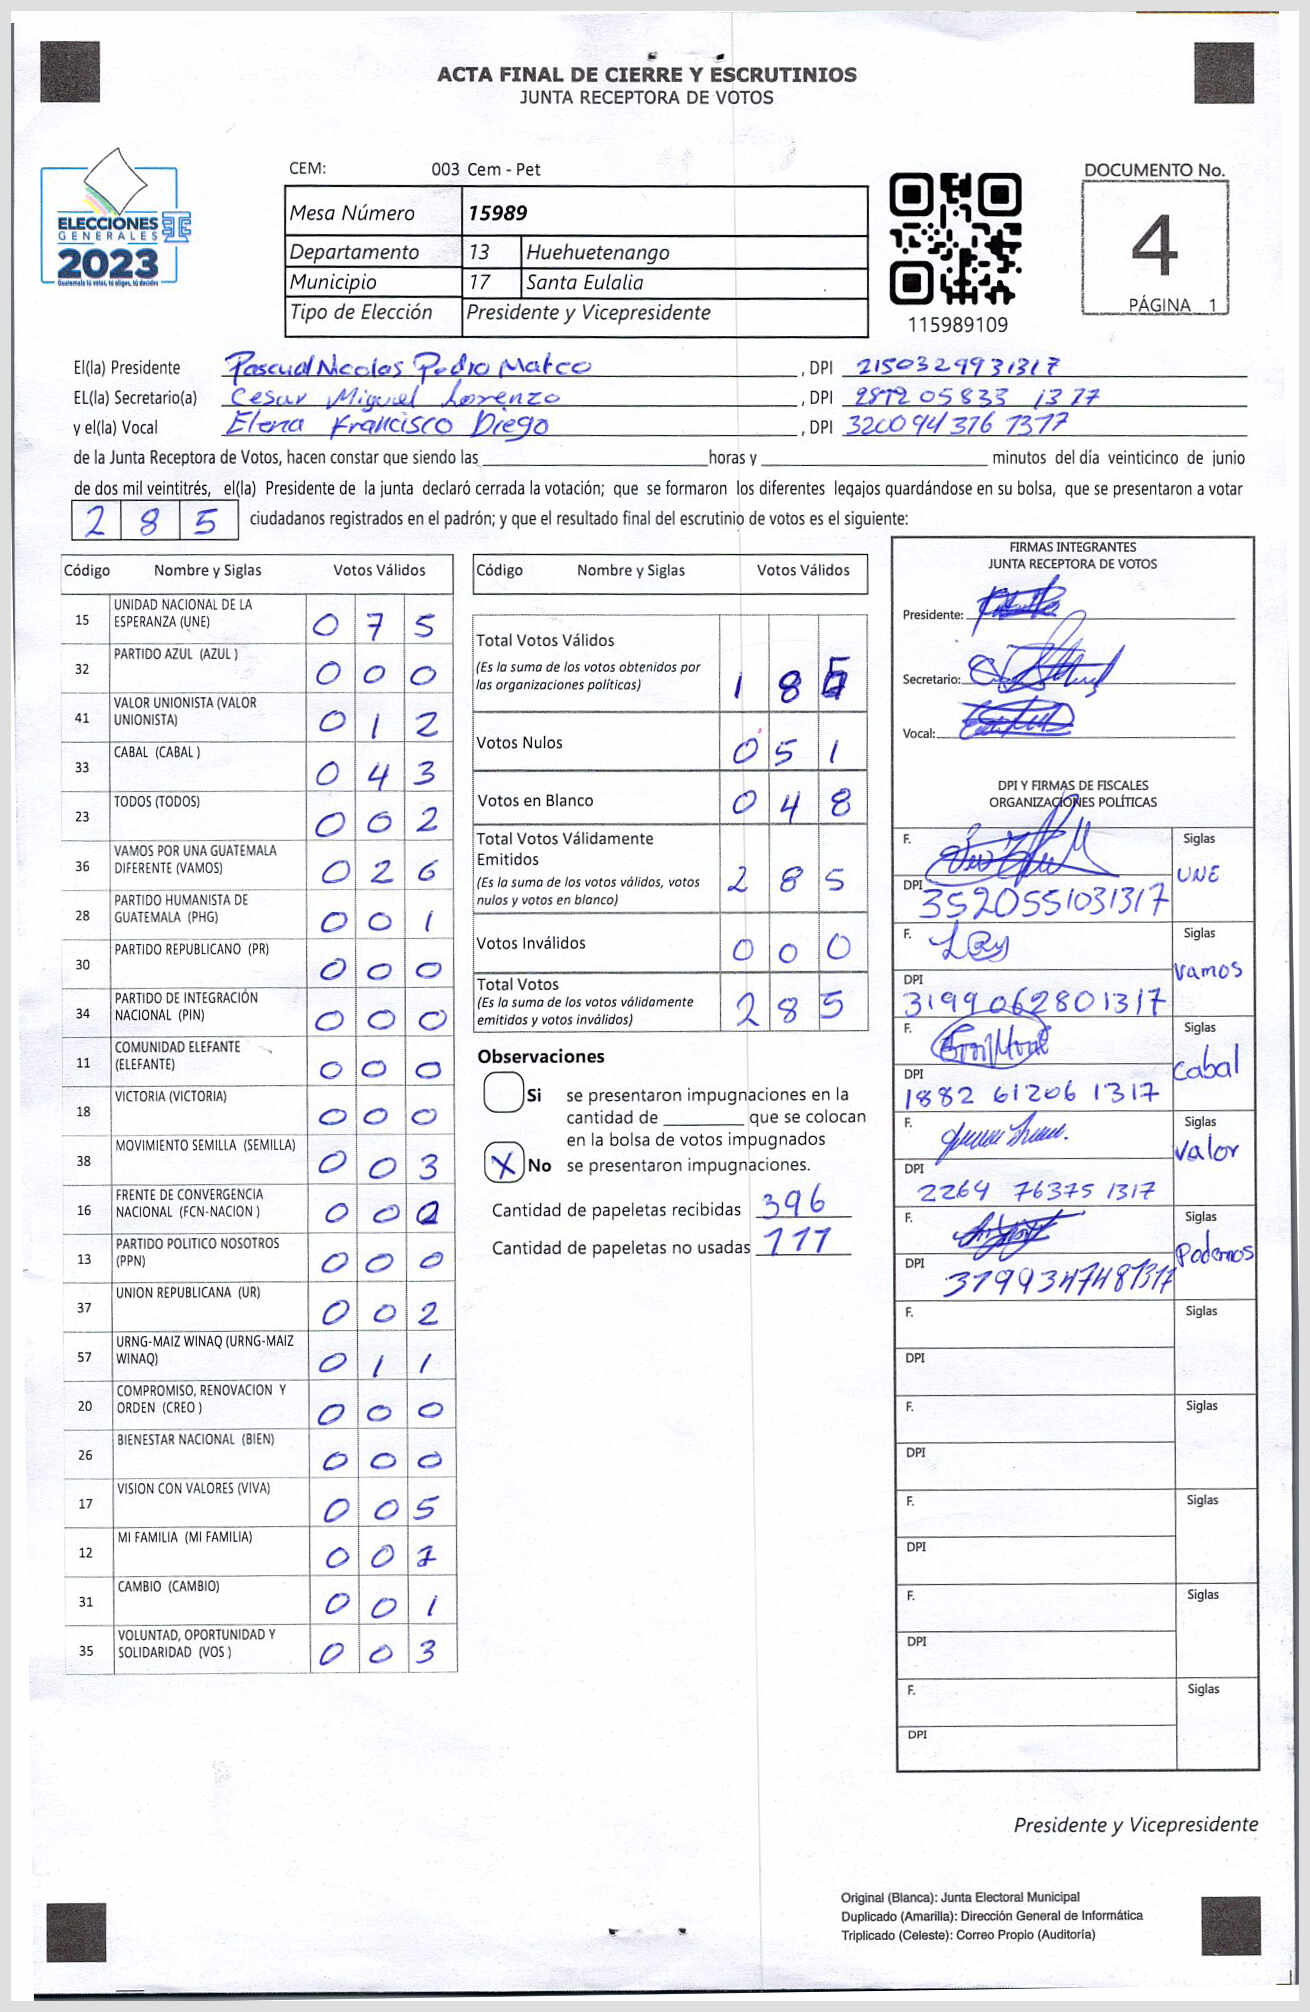 ACTA FINAL DE CIERRE Y ESCRUTINIOS
JUNTA RECEPTORA DE VOTOS
ELECCIONES
GENERALES
2023
Guatemala tú votas, tú eliges, tú decides
CEM: 003 Cem - Pet
Mesa Número 15989
Departamento 13 Huehuetenango
Municipio 17 Santa Eulalia
Tipo de Elección Presidente y Vicepresidente
115989109
DOCUMENTO No.
4
PÁGINA 1
El(la) Presidente Pascual Nicolas Pedro Mateo, DPI 2150329931317
EL(la) Secretario(a) Cesar Miguel Lorenzo, DPI 2812 05833 1377
y el(la) Vocal Elena Francisco Diego, DPI 3200 94376 1317
de la Junta Receptora de Votos, hacen constar que siendo las horas y minutos del día veinticinco de junio
de dos mil veintitrés, el(la) Presidente de la junta declaró cerrada la votación; que se formaron los diferentes legajos guardándose en su bolsa, que se presentaron a votar
285 ciudadanos registrados en el padrón; y que el resultado final del escrutinio de votos es el siguiente:
Código Nombre y Siglas Votos Válidos
15 UNIDAD NACIONAL DE LA ESPERANZA (UNE) 075
32 PARTIDO AZUL (AZUL ) 000
41 VALOR UNIONISTA (VALOR UNIONISTA) 012
33 CABAL (CABAL ) 043
23 TODOS (TODOS) 002
36 VAMOS POR UNA GUATEMALA DIFERENTE (VAMOS) 026
28 PARTIDO HUMANISTA DE GUATEMALA (PHG) 001
30 PARTIDO REPUBLICANO (PR) 000
34 PARTIDO DE INTEGRACIÓN NACIONAL (PIN) 000
11 COMUNIDAD ELEFANTE (ELEFANTE) 000
18 VICTORIA (VICTORIA) 000
38 MOVIMIENTO SEMILLA (SEMILLA) 003
16 FRENTE DE CONVERGENCIA NACIONAL (FCN-NACION ) 00
13 PARTIDO POLITICO NOSOTROS (PPN) 000
37 UNION REPUBLICANA (UR) 002
57 URNG-MAIZ WINAQ (URNG-MAIZ WINAQ) 011
20 COMPROMISO, RENOVACION Y ORDEN (CREO ) 000
26 BIENESTAR NACIONAL (BIEN) 000
17 VISION CON VALORES (VIVA) 005
12 MI FAMILIA (MI FAMILIA) 00
31 CAMBIO (CAMBIO) 001
35 VOLUNTAD, OPORTUNIDAD Y SOLIDARIDAD (VOS ) 003
Código Nombre y Siglas Votos Válidos
Total Votos Válidos 18
(Es la suma de los votos obtenidos por
las organizaciones políticas)
Votos Nulos 051
Votos en Blanco 048
Total Votos Válidamente
Emitidos 285
(Es la suma de los votos válidos, votos
nulos y votos en blanco)
Votos Inválidos 000
Total Votos 285
(Es la suma de los votos válidamente
emitidos y votos inválidos)
Observaciones
Si se presentaron impugnaciones en la
cantidad de que se colocan
en la bolsa de votos impugnados
X No se presentaron impugnaciones.
Cantidad de papeletas recibidas 396
Cantidad de papeletas no usadas 111
FIRMAS INTEGRANTES
JUNTA RECEPTORA DE VOTOS
Presidente:
Secretario:
Vocal:
DPI Y FIRMAS DE FISCALES
ORGANIZACIONES POLÍTICAS
F. Siglas UNE
DPI 3520551031317
F. Siglas Vamos
DPI 3199062801317
F. Siglas Cabal
DPI 1882 61206 1317
F. Siglas Valor
DPI 2264 76375 1317
F. Siglas Podemos
DPI 3199347481317
F. Siglas
DPI
F. Siglas
DPI
F. Siglas
DPI
F. Siglas
DPI
F. Siglas
DPI
Presidente y Vicepresidente
Original (Blanca): Junta Electoral Municipal
Duplicado (Amarilla): Dirección General de Informática
Triplicado (Celeste): Correo Propio (Auditoría)